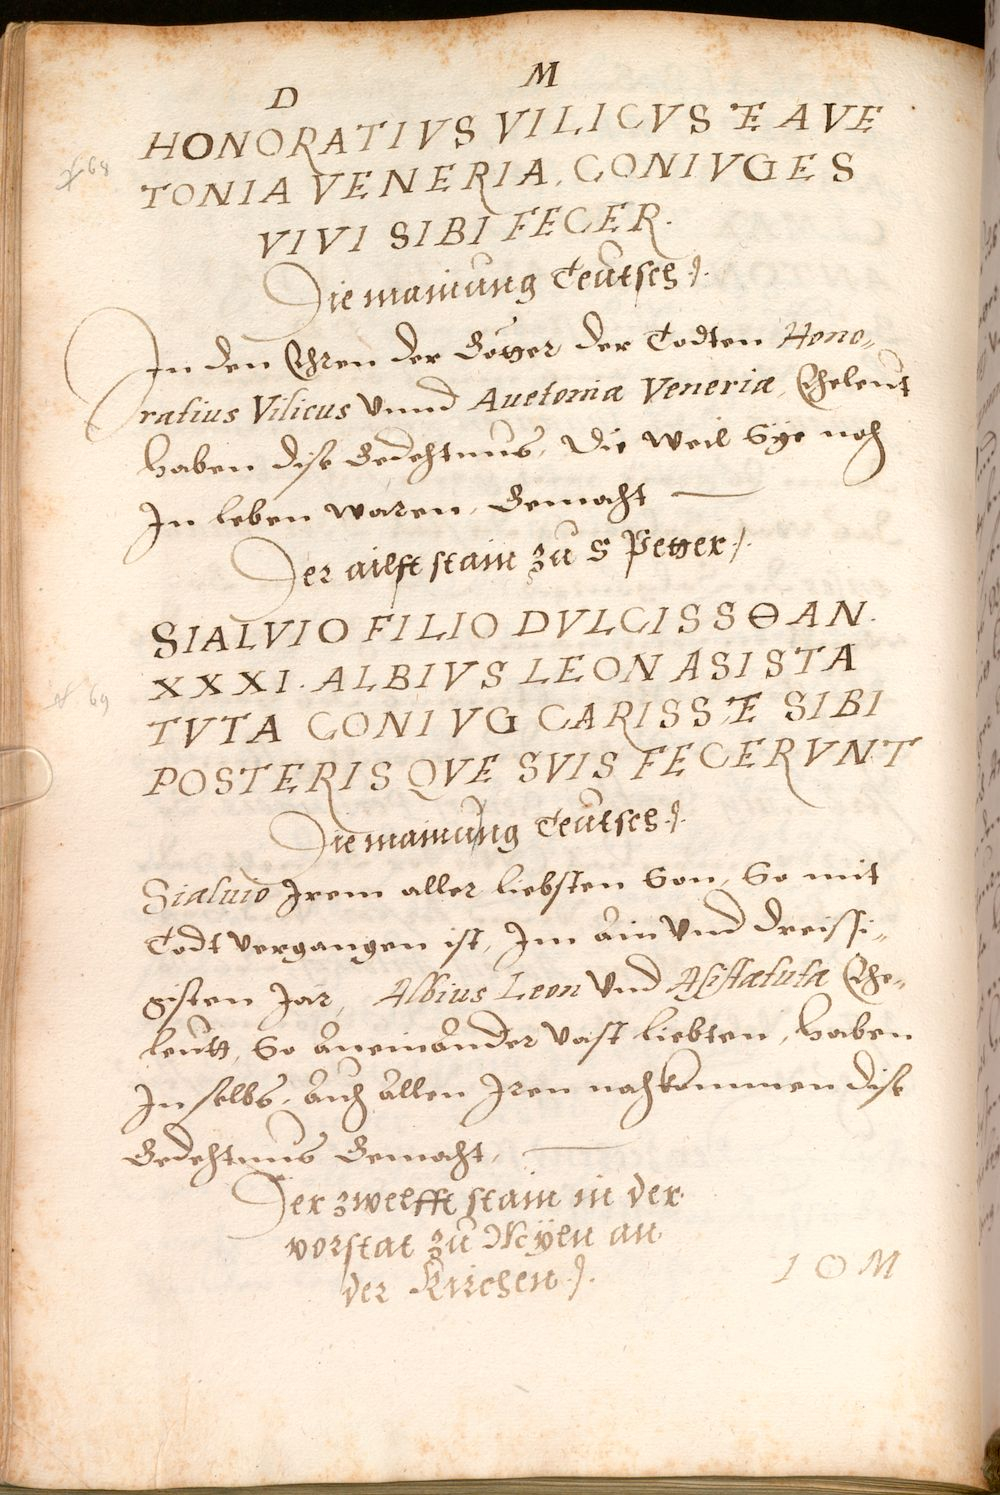 D M
HONORATIVS VILICVS E AVE
TONIA VENERIA. CONIVGES
VIVI SIBI FECER.
Die mainung Teutsch.
In den Ehren der Götter der Todten Hono-
ratius Vilicus Vnnd Auetonia Veneria, Eheleut
haben dise Gedechtnus, Die weil Sÿe noch
In leben waren, Gemacht
Der ailfft stain zu S Petter.
SIALVIO FILIO DVLCISSΘ AN.
XXXI. ALBIVS LEON ASISTA
TVTA CONIVG CARISS E SIBI
POSTERIS QVE SVIS FECERVNT
Die mainung Teutsch.
Sialuio Irem aller liebsten Son, So mit
Todt Vergangen ist, Im ain Vnd dreissi-
gisten Jar, Albius Leon Vnd Asistatuta Ehe-
leutt, So aneinander Vast liebten, haben
In selbs, auch allen Iren nachkommen dise
Gedechtnus Gemacht,
Der zwelfft stain in der
vorstat zu an
der Kirchen.
I O M